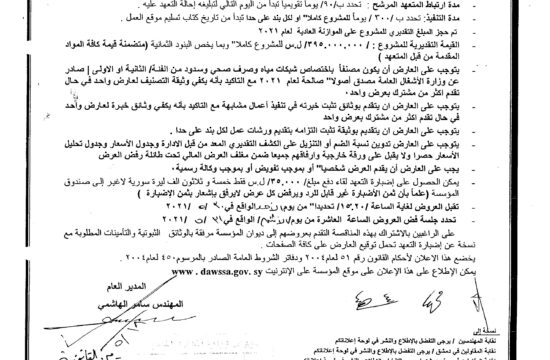 مدة ارتباط المتعهد المرشح : تحدد ب/٩٠/ يوماً تقويمياً تبدأ من اليوم التالي لتبليغه إحالة التعهد عليه .
مدة التنفيذ: تحدد ب / ٣٠٠ / يوماً للمشروع كاملاً" او لكل بند على حدا تبدأ من تاريخ كتاب تسليم موقع العمل .
تم حجز المبلغ التقديري للمشروع على الموازنة العادية لعام ٢٠٢١
القيمة التقديرية للمشروع : /٣٩٥.٠٠٠.٠٠٠/ ل.س للمشروع كاملا" وبما يخص البنود الثمانية (متضمنة قيمة كافة المواد
المقدمة من قبل المتعهد )
يتوجب على العارض أن يكون مصنفاً باختصاص شبكات مياه وصرف صحي وسدود من الفئة/ الثانية او الاولى | صادر
عن وزارة الأشغال العامة مصدق أصولاً" صالحة لعام ٢٠٢١ مع التاكيد بأنه يكفي وثيقة التصنيف لعارض واحد في حال
تقدم اكثر من مشترك بعرض واحد
يتوجب على العارض ان يتقدم بوثائق تثبت خبرته في تنفيذ أعمال مشابهة مع التاكيد بأنه يكفي وثائق خبرة لعارض واحد
في حال تقدم اكثر من مشترك بعرض واحد
يتوجب على العارض ان يتقدم بوثيقة تثبت التزامه بتقديم ورشات عمل لكل بند على حدا .
يتوجب على العارض تدوين نسبة الضم أو التنزيل على الكشف التقديري المعد من قبل الادارة وجدول الأسعار وجدول تحليل
الأسعار حصرا ولا يقبل على ورقة خارجية وارفاقهم جميعا ضمن مغلف العرض المالي تحت طائلة رفض العرض
يجب على العارض أن يقدم العرض شخصياً" أو بموجب تفويض أو بموجب وكالة رسمية.
يمكن الحصول على إضبارة التعهد لقاء دفع مبلغ/ ٣٥.٠٠٠/ ل.س فقط خمسة و ثلاثون الف ليرة سورية لاغير إلى صندوق
المؤسسة (علماً بأن ثمن الأضبارة غير قابل للرد ويرفض كل عرض لايرفق بإشعار بثمن الإضبارة )
تقبل العروض لغاية الساعة /١٥.٢٠/ تحديدا" من يوم/ الواقع في / / ٢٠٢١
تحدد جلسة فض العروض الساعة العاشرة من يوم/ الواقع في / / ٢٠٢١
على الراغبين بالاشتراك بهذه المناقصة التقدم بعروضهم إلى ديوان المؤسسة مرفقة بالوثائق الثبوتية والتأمينات المطلوبة مع
نسخة عن إضبارة التعهد تحمل توقيع العارض على كافة الصفحات .
يخضع هذا الاعلان لأحكام القانون رقم ٥١ لعام ٢٠٠٤ ودفاتر الشروط العامة الصادر بالمرسوم ٤٥٠ لعام ٢٠٠٤.
يمكن الإطلاع على هذا الإعلان على موقع المؤسسة على الإنترنيت www . dawssa.gov. sy
المدير العام
المهندس سامر الهاشمي
نسخة إلى
نقابة المهندسين / يرجى التفضل بالإطلاع والنشر في لوحة إعلاناتكم
نقابة المقاولين في دمشق / يرجى التفضل بالإطلاع والنشر في لوحة إعلاناتكم